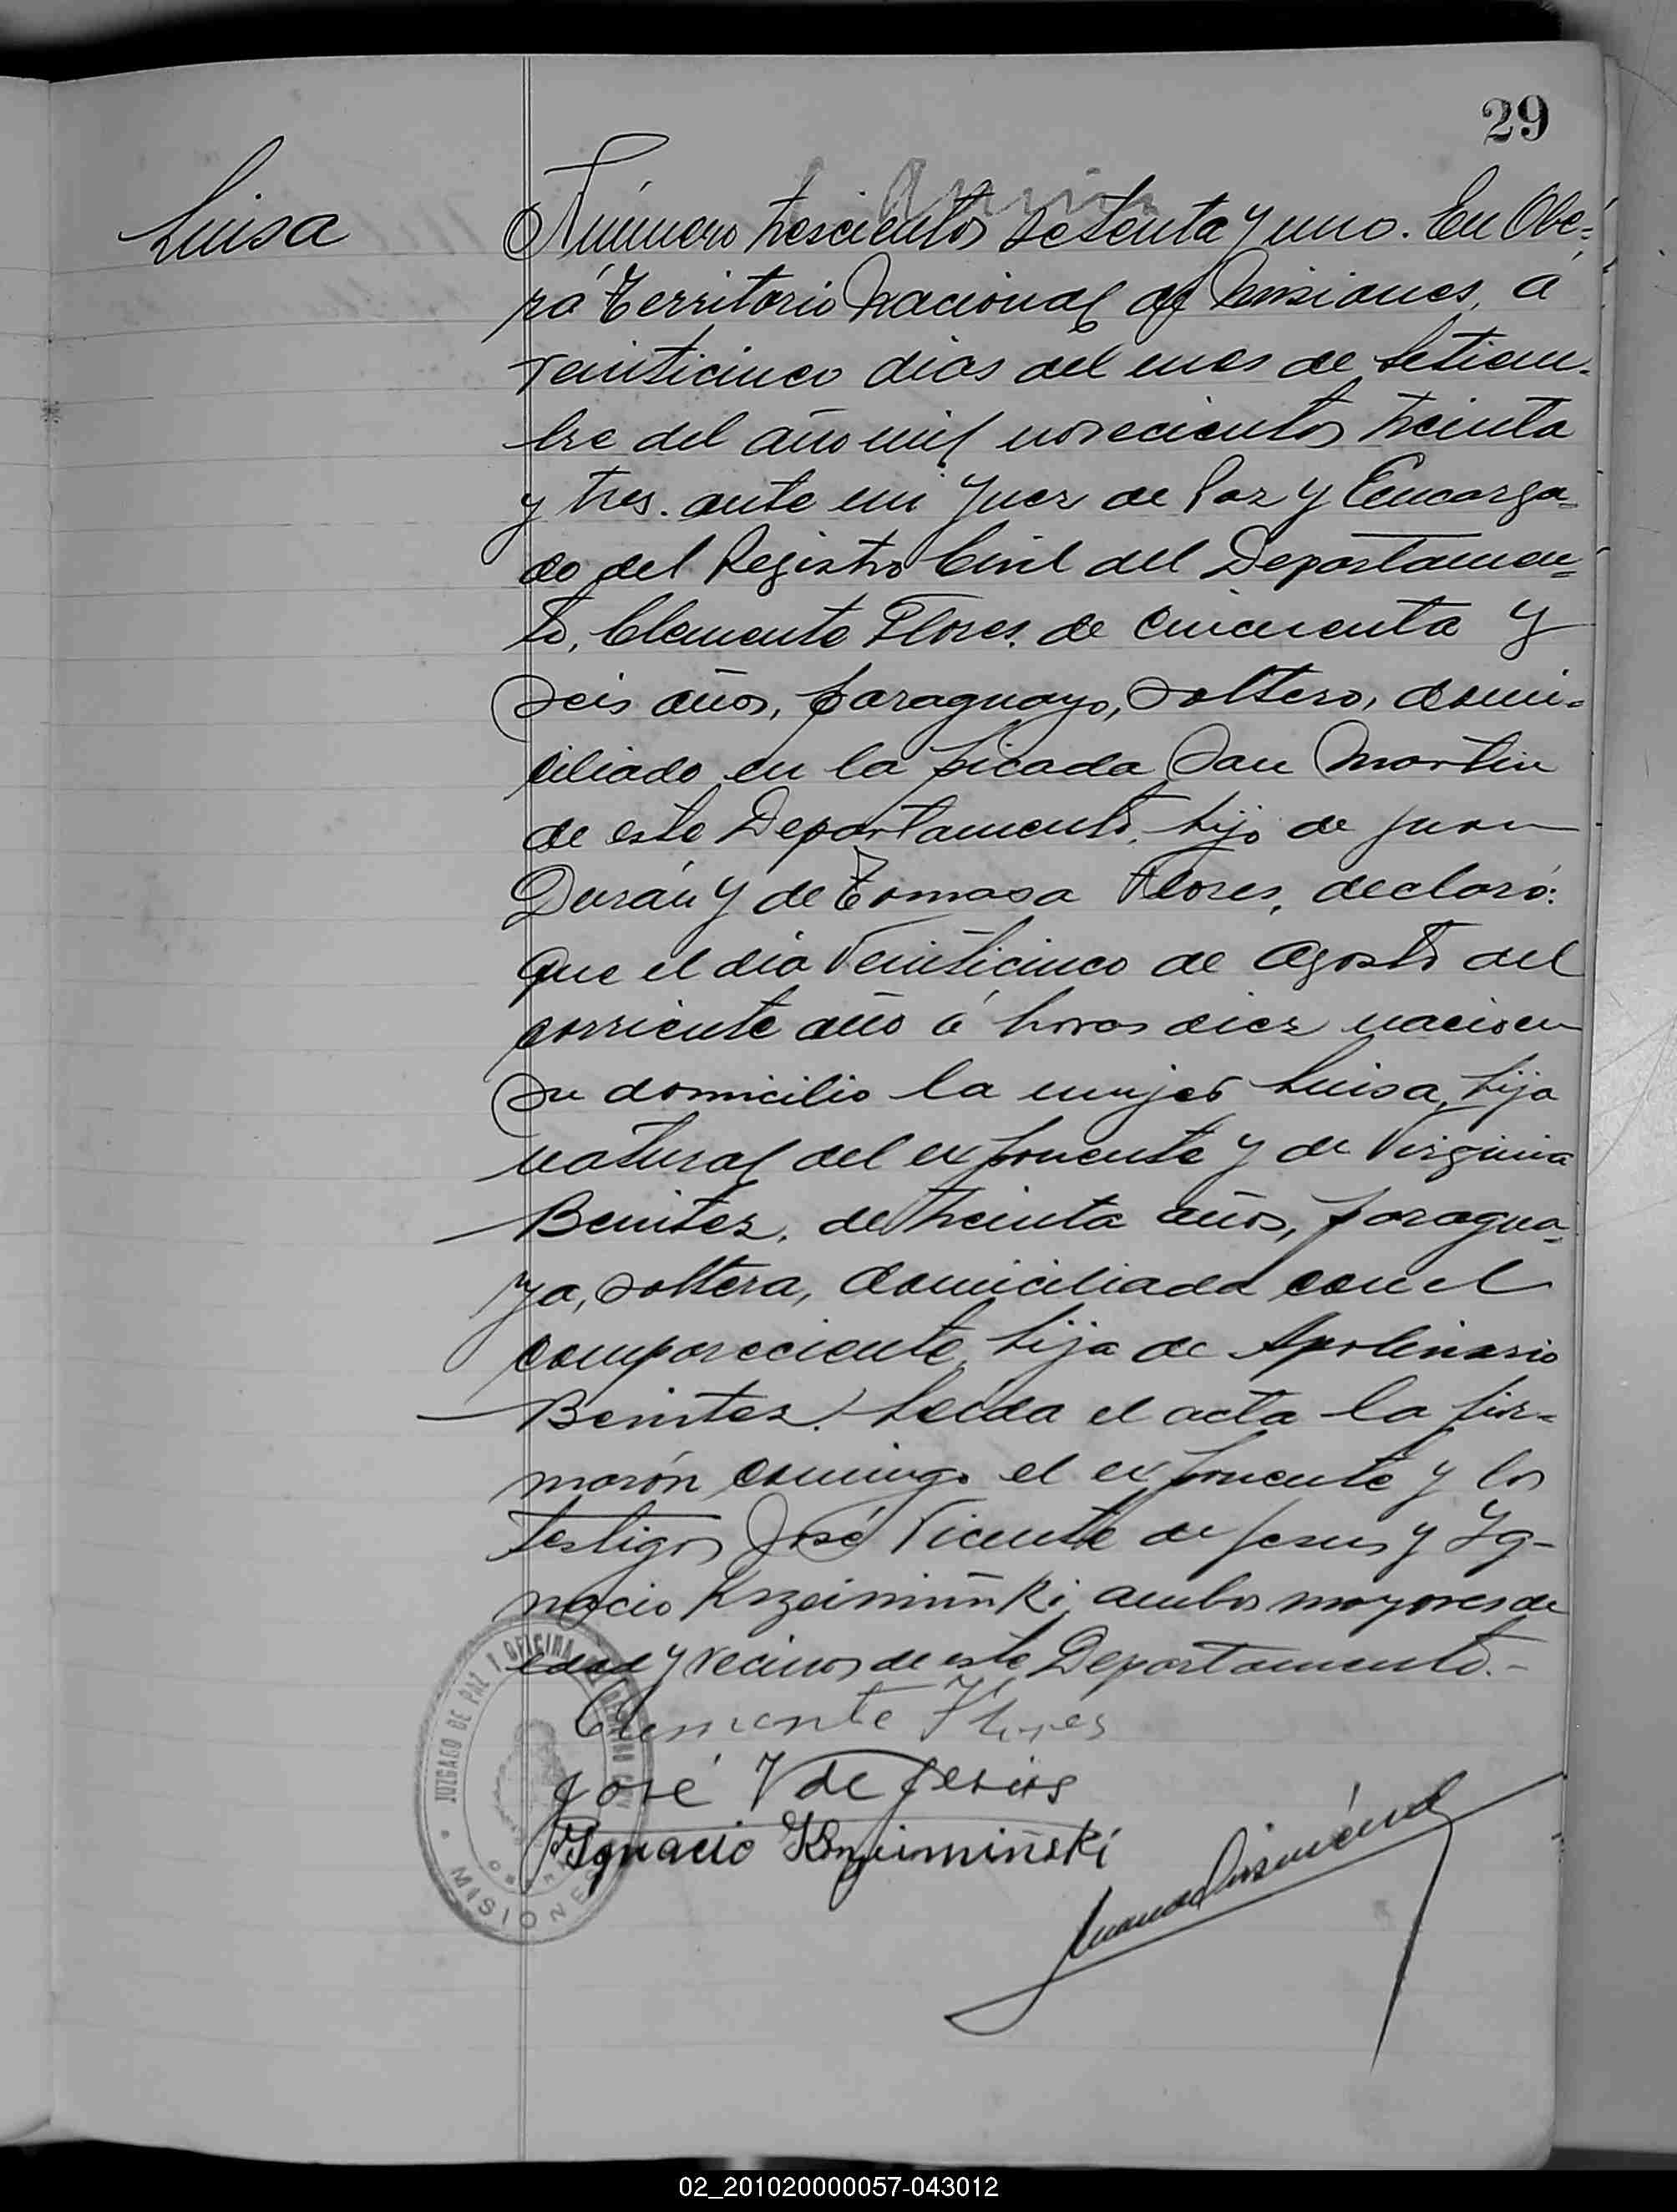 29
Luisa
Número trescientos setenta y uno. En Obe-
rá Territorio Nacional de Misiones, a
veinticinco dias del mes de Setiem-
bre del año mil novecientos treinta
y tres. ante mi Juez de Paz y Encarga-
do del Registro Civil del Departamen-
to, Clemente Flores, de cincuenta y
seis años, paraguayo, soltero, domi-
ciliado en la picada San Martin
de este Departamento, hijo de Juan
Durán y de Tomasa Flores, declaró:
Que el dia veinticinco de Agosto del
corriente año á horas diez nacio en
su domicilio la mujer Luisa, hija
natural del exponente y de Virginia
Benitez, de treinta años, paragua-
ya, soltera, domiciliada con el
compareciente, hija de Apolinario
Benitez. Leida el acta la fir-
marón conmigo el exponente y los
testigos José Vicente de Jesus y Ig-
nacio Krzeimiñski, ambos mayores de
edad y vecinos de este Departamento.-
Clemente Flores
José V de Jesús
Ignacio
JUZGADO DE PAZ Y OFICINA DE REGISTRO CIVIL
MISIONES
02_201020000057-043012